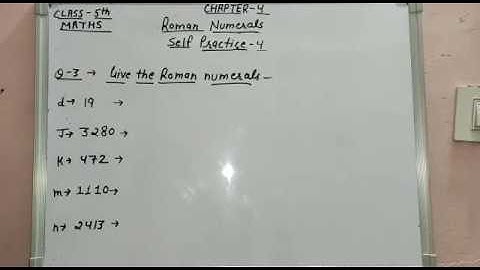 CLASS-5th
MATHS
CHAPTER-4
Roman Numerals
Self Practice-4
Q-3 → Give the Roman numerals-
d→ 19 →
J→ 3280→
K→ 472 →
m→1110→
n→ 2413 →